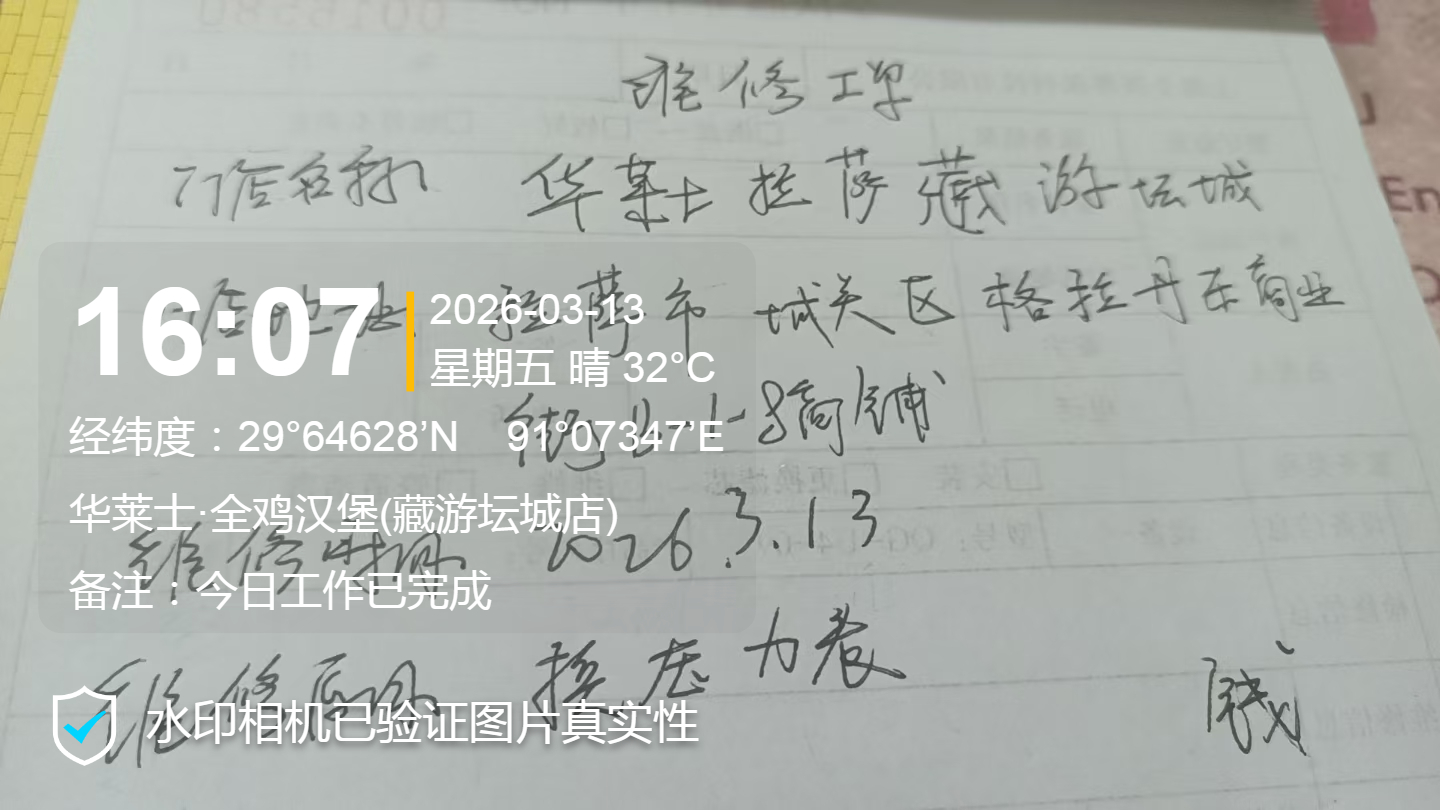 维修工单
门店名称 华莱士拉萨藏游坛城
店地址 拉萨市 城关区格拉丹东商业
街 1-8商铺
维修时间 2026.3.13
维修 换压力表
16:07
2026-03-13
星期五 晴 32°C
经纬度：29°64628’N 91°07347’E
华莱士·全鸡汉堡(藏游坛城店)
备注：今日工作已完成
水印相机已验证图片真实性